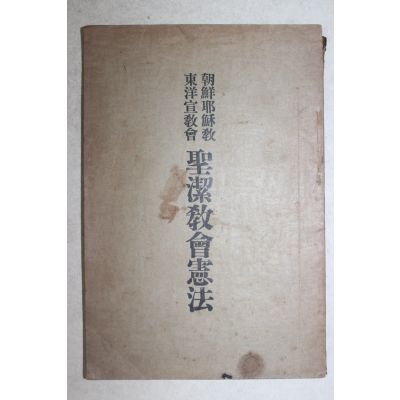 朝鮮耶穌敎
東洋宣敎會
聖潔敎會憲法